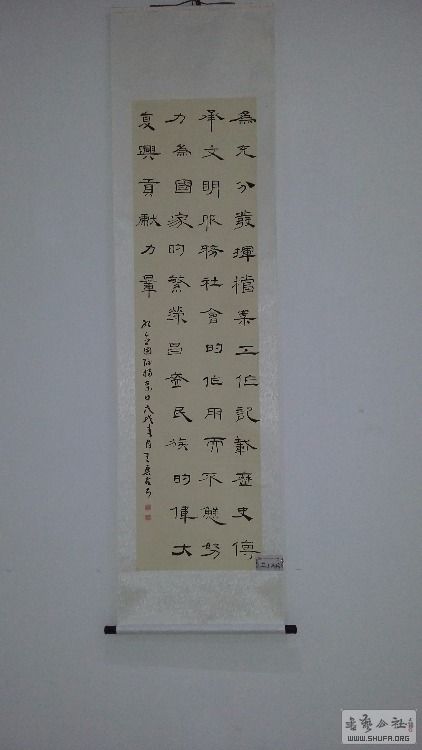 為充分發揮檔案工作記載歷史傳
承文明服務社會的作用而不懈努
力為國家的繁榮昌盛民族的偉大
复興貢獻力量
書藝公社
WWW.SHUFA.ORG